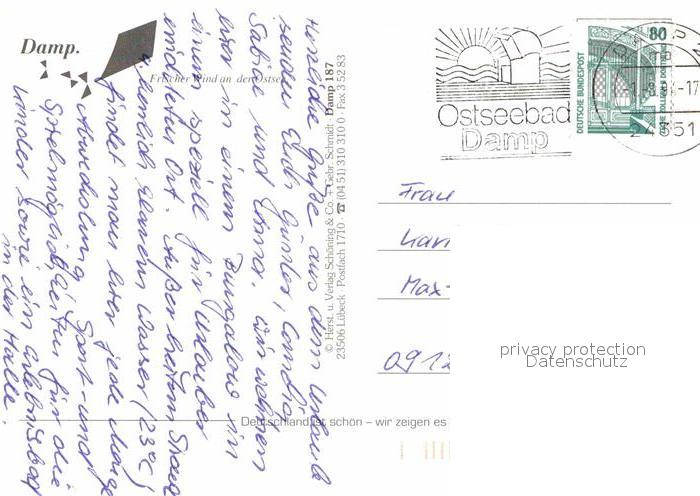 Damp.
Frischer Wind an der Ostsee
Herzliche Grüße aus dem Urlaub
senden Euch Günter, Claudia,
Sabine und Erna. Wir wohnen
hier in einem Bungalow in
einem speziell für Urlauber
Ort. Außer hohem Strand
herrlich klarem Wasser (23°C)
findet man hier jede Menge
Abwechslung. Sport- und
Spielmöglichkeiten für die
Kinder sowie ein Erlebnisbad
in der Halle.
© Herst. u. Verlag Schöning & Co. + Gebr. Schmidt · Damp 187
23506 Lübeck · Postfach 1710 · ☎ (04 51) 310 310 0 · Fax 3 52 83
Deutschland ist schön – wir zeigen es
Ostseebad
Damp
80
DEUTSCHE BUNDESPOST
24351
Frau
Max-
0912
privacy protection
Datenschutz